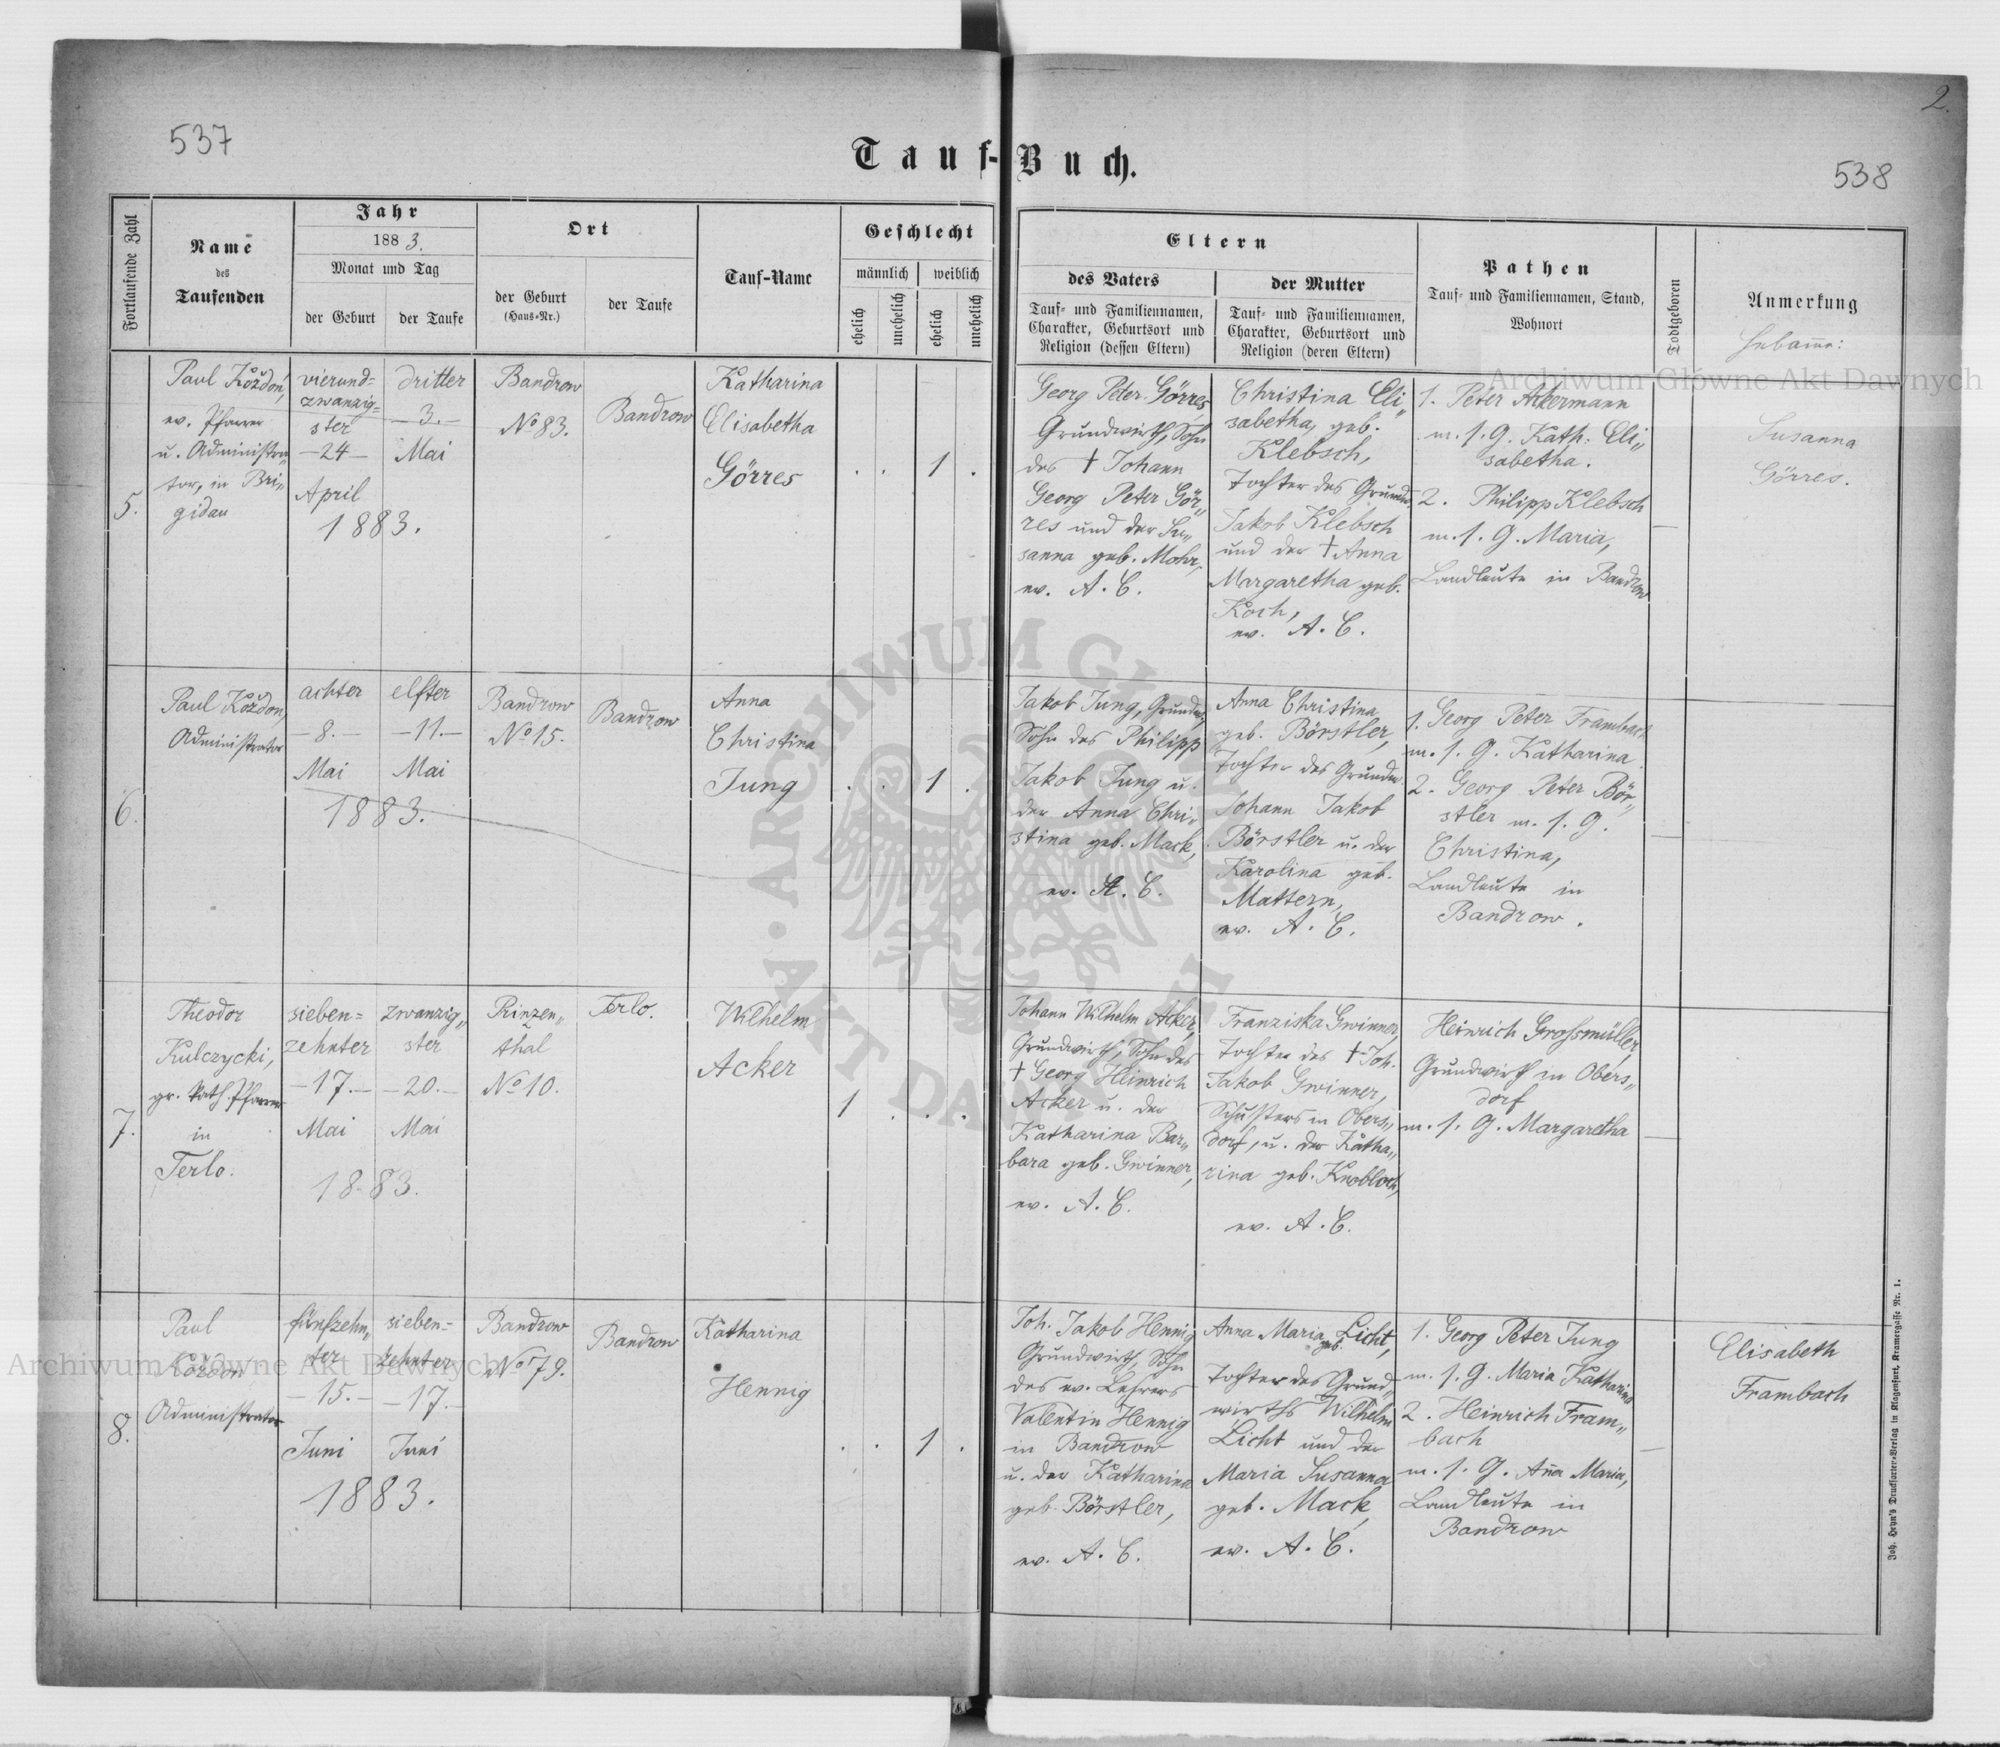 537
2.
538
Tauf-Buch.
Fortlaufende Zahl
Name
des
Taufenden
Jahr
1883.
Monat und Tag
der Geburt
der Taufe
Ort
der Geburt
(Haus-Nr.)
der Taufe
Tauf-Name
Geschlecht
männlich
weiblich
ehelich
unehelich
ehelich
unehelich
Eltern
des Vaters
Tauf- und Familiennamen,
Charakter, Geburtsort und
Religion (dessen Eltern)
der Mutter
Tauf- und Familiennamen,
Charakter, Geburtsort und
Religion (deren Eltern)
Pathen
Tauf- und Familiennamen, Stand,
Wohnort
Todtgeboren
Anmerkung
Hebame:
5.
Paul Koždoń,
ev. Pfarrer
u. Administra„
tor, in Bri„
gidau
vierund=
zwanzig=
ster
—24—
April
dritter
—3.—
Mai
1883.
Bandrow
No 83.
Bandrow
Katharina
Elisabetha
Görres
1
Georg Peter Görres,
Grundwirth, Sohn
des † Johann
Georg Peter Gör„
res und der Su„
sanna geb. Mohr,
ev. A. C.
Christina Eli„
sabetha, geb.
Klebsch,
Tochter des Grundw.
Jakob Klebsch
und der † Anna
Margaretha geb.
Koch,
ev. A. C.
1. Peter Ackermann
m. s. G. Kath. Eli„
sabetha.
2. Philipp Klebsch
m. s. G. Maria,
Landleute in Bandrow
Susanna
Görres.
6.
Paul Koždoń,
Administrator
achter
—8.—
Mai
elfter
—11.—
Mai
1883.
Bandrow
No 15.
Bandrow
Anna
Christina
Jung
1
Jakob Jung, Grundw.,
Sohn des Philipp
Jakob Jung u.
der Anna Chri„
stina geb. Mack,
ev. A. C.
Anna Christina
geb. Börstler,
Tochter des Grundw.
Johann Jakob
Börstler u. der
Karolina geb.
Mattern,
ev. A. C.
1. Georg Peter Frambach
m. s. G. Katharina.
2. Georg Peter Bör„
stler m. s. G.
Christina,
Landleute in
Bandrow.
7.
Theodor
Kulczycki,
gr. kath. Pfarrer
in
Terlo.
sieben=
zehnter
—17.—
Mai
zwanzig„
ster
—20.—
Mai
1883.
Prinzen„
thal
No 10.
Terlo.
Wilhelm
Acker
1
Johann Wilhelm Acker,
Grundwirth, Sohn des
† Georg Heinrich
Acker u. der
Katharina Bar„
bara geb. Gwinner,
ev. A. C.
Franziska Gwinner,
Tochter des † Joh.
Jakob Gwinner,
Schusters in Obers„
dorf, u. der Katha„
rina geb. Knobloch,
ev. A. C.
Heinrich Grossmüller,
Grundwirth in Obers„
dorf
m. s. G. Margaretha
8.
Paul
Koždoń
Administrator
fünfzehn„
ter
—15.—
Juni
sieben=
zehnter
—17.—
Juni
1883.
Bandrow
No 79.
Bandrow
Katharina
Hennig
1
Joh. Jakob Hennig
Grundwirth, Sohn
des ev. Lehrers
Valentin Hennig
in Bandrow
u. der Katharina
geb. Börstler,
ev. A. C.
Anna Maria geb. Licht,
Tochter des Grund„
wirths Wilhelm
Licht und der
Maria Susanna
geb. Mack,
ev. A. C.
1. Georg Peter Jung
m. s. G. Maria Katharina
2. Heinrich Fram„
bach
m. s. G. Ana Maria,
Landleute in
Bandrow
Elisabeth
Frambach
Joh. Heyn's Drucksorten-Verlag in Klagenfurt, Kramergasse Nr. 1.
Archiwum Główne Akt Dawnych
Archiwum Główne Akt Dawnych
ARCHIWUM GŁÓWNE AKT DAWNYCH